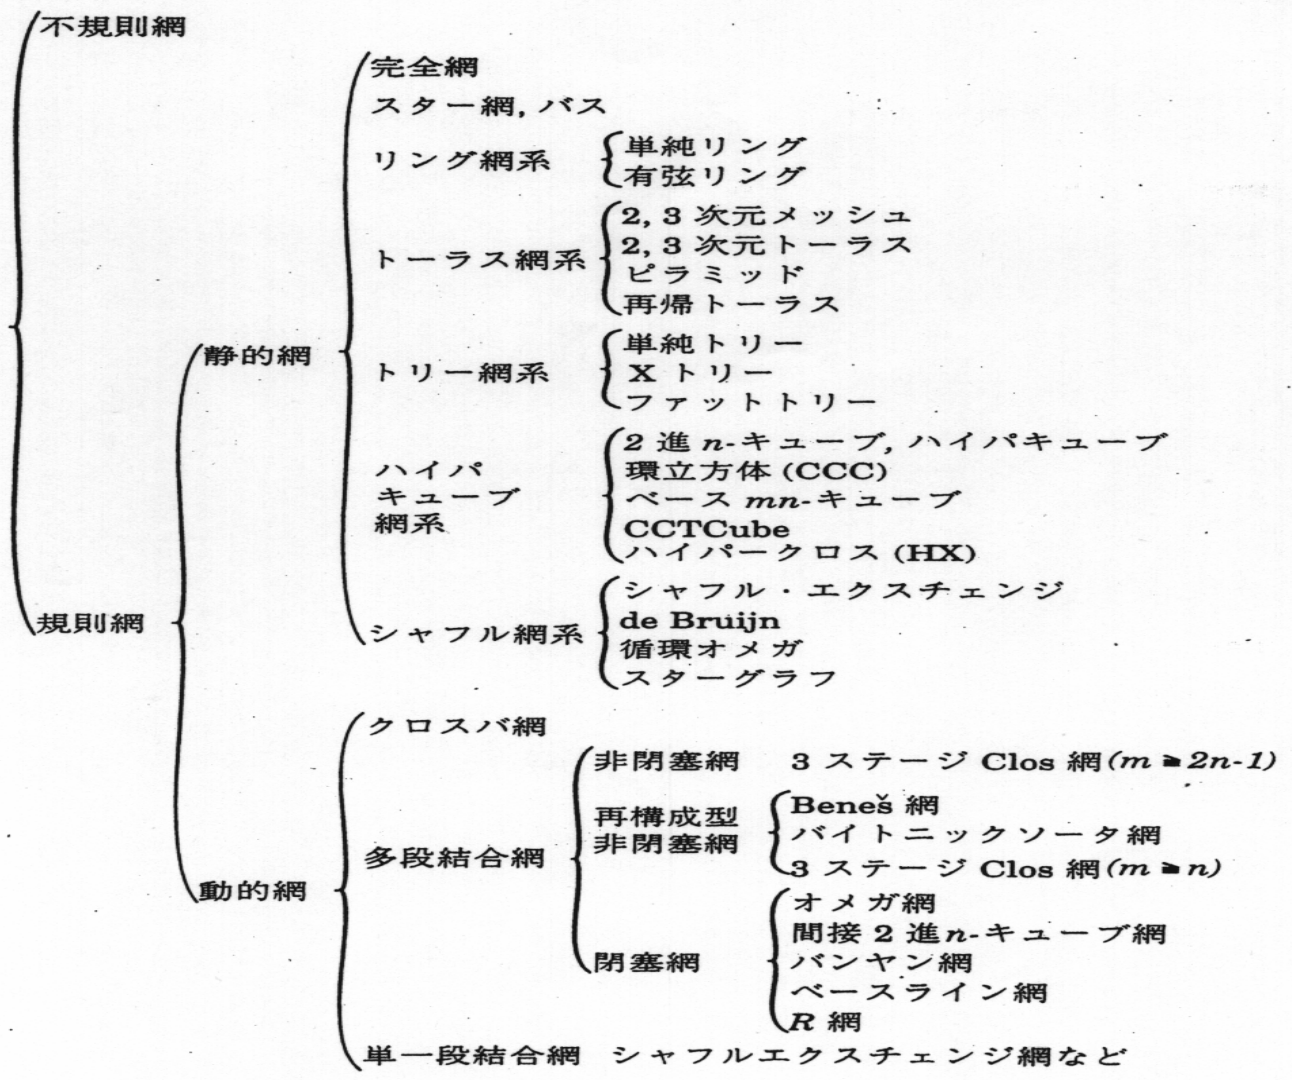 不規則網
完全網
スター網, バス
リング網系
単純リング
有弦リング
トーラス網系
2, 3 次元メッシュ
2, 3 次元トーラス
ピラミッド
再帰トーラス
静的網
トリー網系
単純トリー
X トリー
ファットトリー
ハイパ
キューブ
網系
2 進 n-キューブ, ハイパキューブ
環立方体 (CCC)
ベース mn-キューブ
CCTCube
ハイパークロス (HX)
規則網
シャフル網系
シャフル・エクスチェンジ
de Bruijn
循環オメガ
スターグラフ
クロスバ網
非閉塞網 3 ステージ Clos 網(m ≥ 2n-1)
再構成型
非閉塞網
Beneš 網
バイトニックソータ網
3 ステージ Clos 網(m ≥ n)
多段結合網
動的網
閉塞網
オメガ網
間接 2 進n-キューブ網
バンヤン網
ベースライン網
R 網
単一段結合網 シャフルエクスチェンジ網など